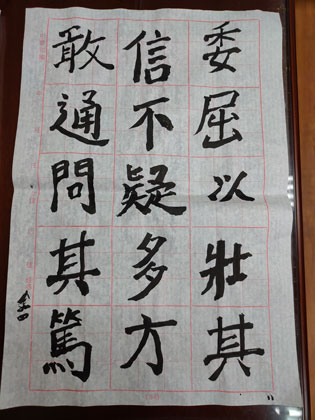 委屈以壯其
信不疑多方
敢通問其篤